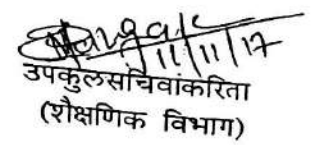 11/11/17
उपकुलसचिवांकरिता
(शैक्षणिक विभाग)